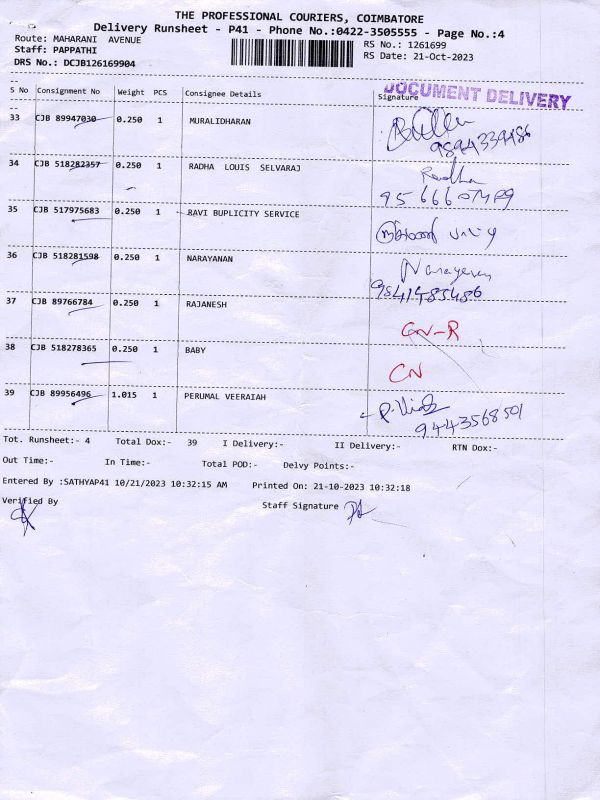 THE PROFESSIONAL COURIERS, COIMBATORE
Delivery Runsheet - P41 - Phone No.:0422-3505555 - Page No.:4
Route: MAHARANI AVENUE
RS No.: 1261699
Staff: PAPPATHI
RS Date: 21-Oct-2023
DRS No.: DCJB126169904
DOCUMENT DELIVERY
S No Consignment No Weight PCS Consignee Details Signature
33 CJB 89947030 0.250 1 MURALIDHARAN
9894339486
34 CJB 518282357 0.250 1 RADHA LOUIS SELVARAJ Radha
35 CJB 517975683 0.250 1 RAVI BUPLICITY SERVICE
36 CJB 518281598 0.250 1 NARAYANAN Narayanan
37 CJB 89766784 0.250 1 RAJANESH CN-R
38 CJB 518278365 0.250 1 BABY CN
39 CJB 89956496 1.015 1 PERUMAL VEERAIAH
9443568501
Tot. Runsheet:- 4 Total Dox:- 39 I Delivery:- II Delivery:- RTN Dox:-
Out Time:- In Time:- Total POD:- Delvy Points:-
Entered By :SATHYAP41 10/21/2023 10:32:15 AM Printed On: 21-10-2023 10:32:18
Verified By Staff Signature